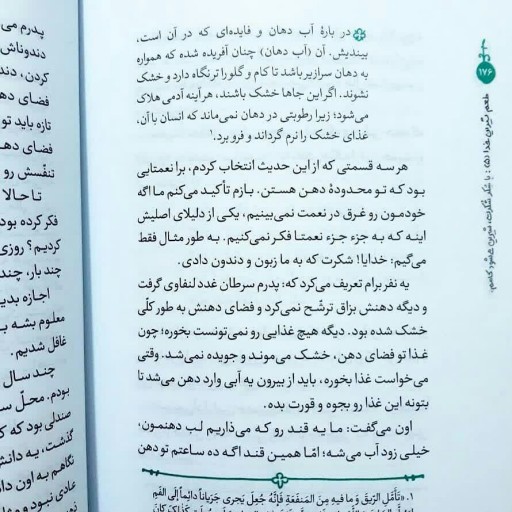 در بارهٔ آب دهان و فایده‌ای که در آن است،
بیندیش. آن (آب دهان) چنان آفریده شده که همواره
به دهان سرازیر باشد تا کام و گلو را تر نگاه دارد و خشک
نشوند. اگر این جاها خشک باشند، هر آینه آدمی هلاک
می‌شود؛ زیرا رطوبتی در دهان نمی‌ماند که انسان با آن،
غذای خشک را نرم گرداند و فرو برد.¹
هر سه قسمتی که از این حدیث انتخاب کردم، برا نعمتایی
بود که تو محدودهٔ دهن هستن. بازم تأکید می‌کنم ما اگه
خودمون رو غرق در نعمت نمی‌بینیم، یکی از دلیلای اصلیش
اینه که به جزء جزء نعمتا فکر نمی‌کنیم. به طور مثال فقط
می‌گیم: خدایا! شکرت که به ما زبون و دندون دادی.
یه نفر برام تعریف می‌کرد که: پدرم سرطان غدد لنفاوی گرفت
و دیگه دهنش بزاق ترشّح نمی‌کرد و فضای دهنش به طور کلّی
خشک شده بود. دیگه هیچ غذایی رو نمی‌تونست بخوره؛ چون
غذا تو فضای دهن، خشک می‌موند و جویده نمی‌شد. وقتی
می‌خواست غذا بخوره، باید از بیرون یه آبی وارد دهن می‌شد تا
بتونه این غذا رو بجوه و قورت بده.
اون می‌گفت: ما یه قند رو که می‌ذاریم لب دهنمون،
خیلی زود آب می‌شه؛ امّا همین قند اگه ده ساعتم تو دهن
۱. «تَأَمَّلِ الرّیقَ وَ ما فیهِ مِنَ المَنفَعَةِ فَإِنَّهُ جُعِلَ یَجری جَرَیاناً دائِماً إلَی الفَمِ
۱۷۶
پدرم می
دندوناش
کردن، دند
فضای ده
تازه باید تو
فضای ده
تنفّسش رو
تا حالا
فکر کرده بود
کردیم؟ روزی
چند بار، چند
اجازه بدید
معلوم بشه ب
غافل شدیم.
چند سال
بودم. محلّ س
صندلی بود که ک
گذشت، یه دانش
نگاهم به اون دا
عادی نبود و م